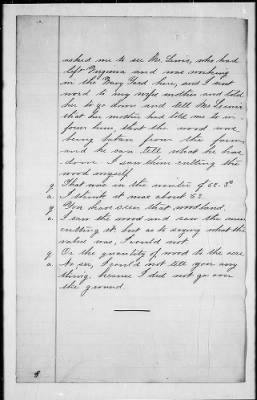 asked me to see Mr. Lewis, who had
left Virginia and was working
in the Navy Yard here, and I sent
word to my wifes mother and told
her to go down and tell Mr Lewis
that her mother had told me to in-
form him, that the wood was
being taken from the farm,
and he can tell what he has
done. I saw them cutting the
wood myself.
q That was in the winter of 62. 3?
a. I think it was about 63.
q You have seen that wood land.
a. I saw the wood and saw the men
cutting it but as to saying what the
value was, I could not.
q Or the quantity of wood to the acre
a. No sir, I could not tell you any
thing, because I did not go over
the ground.